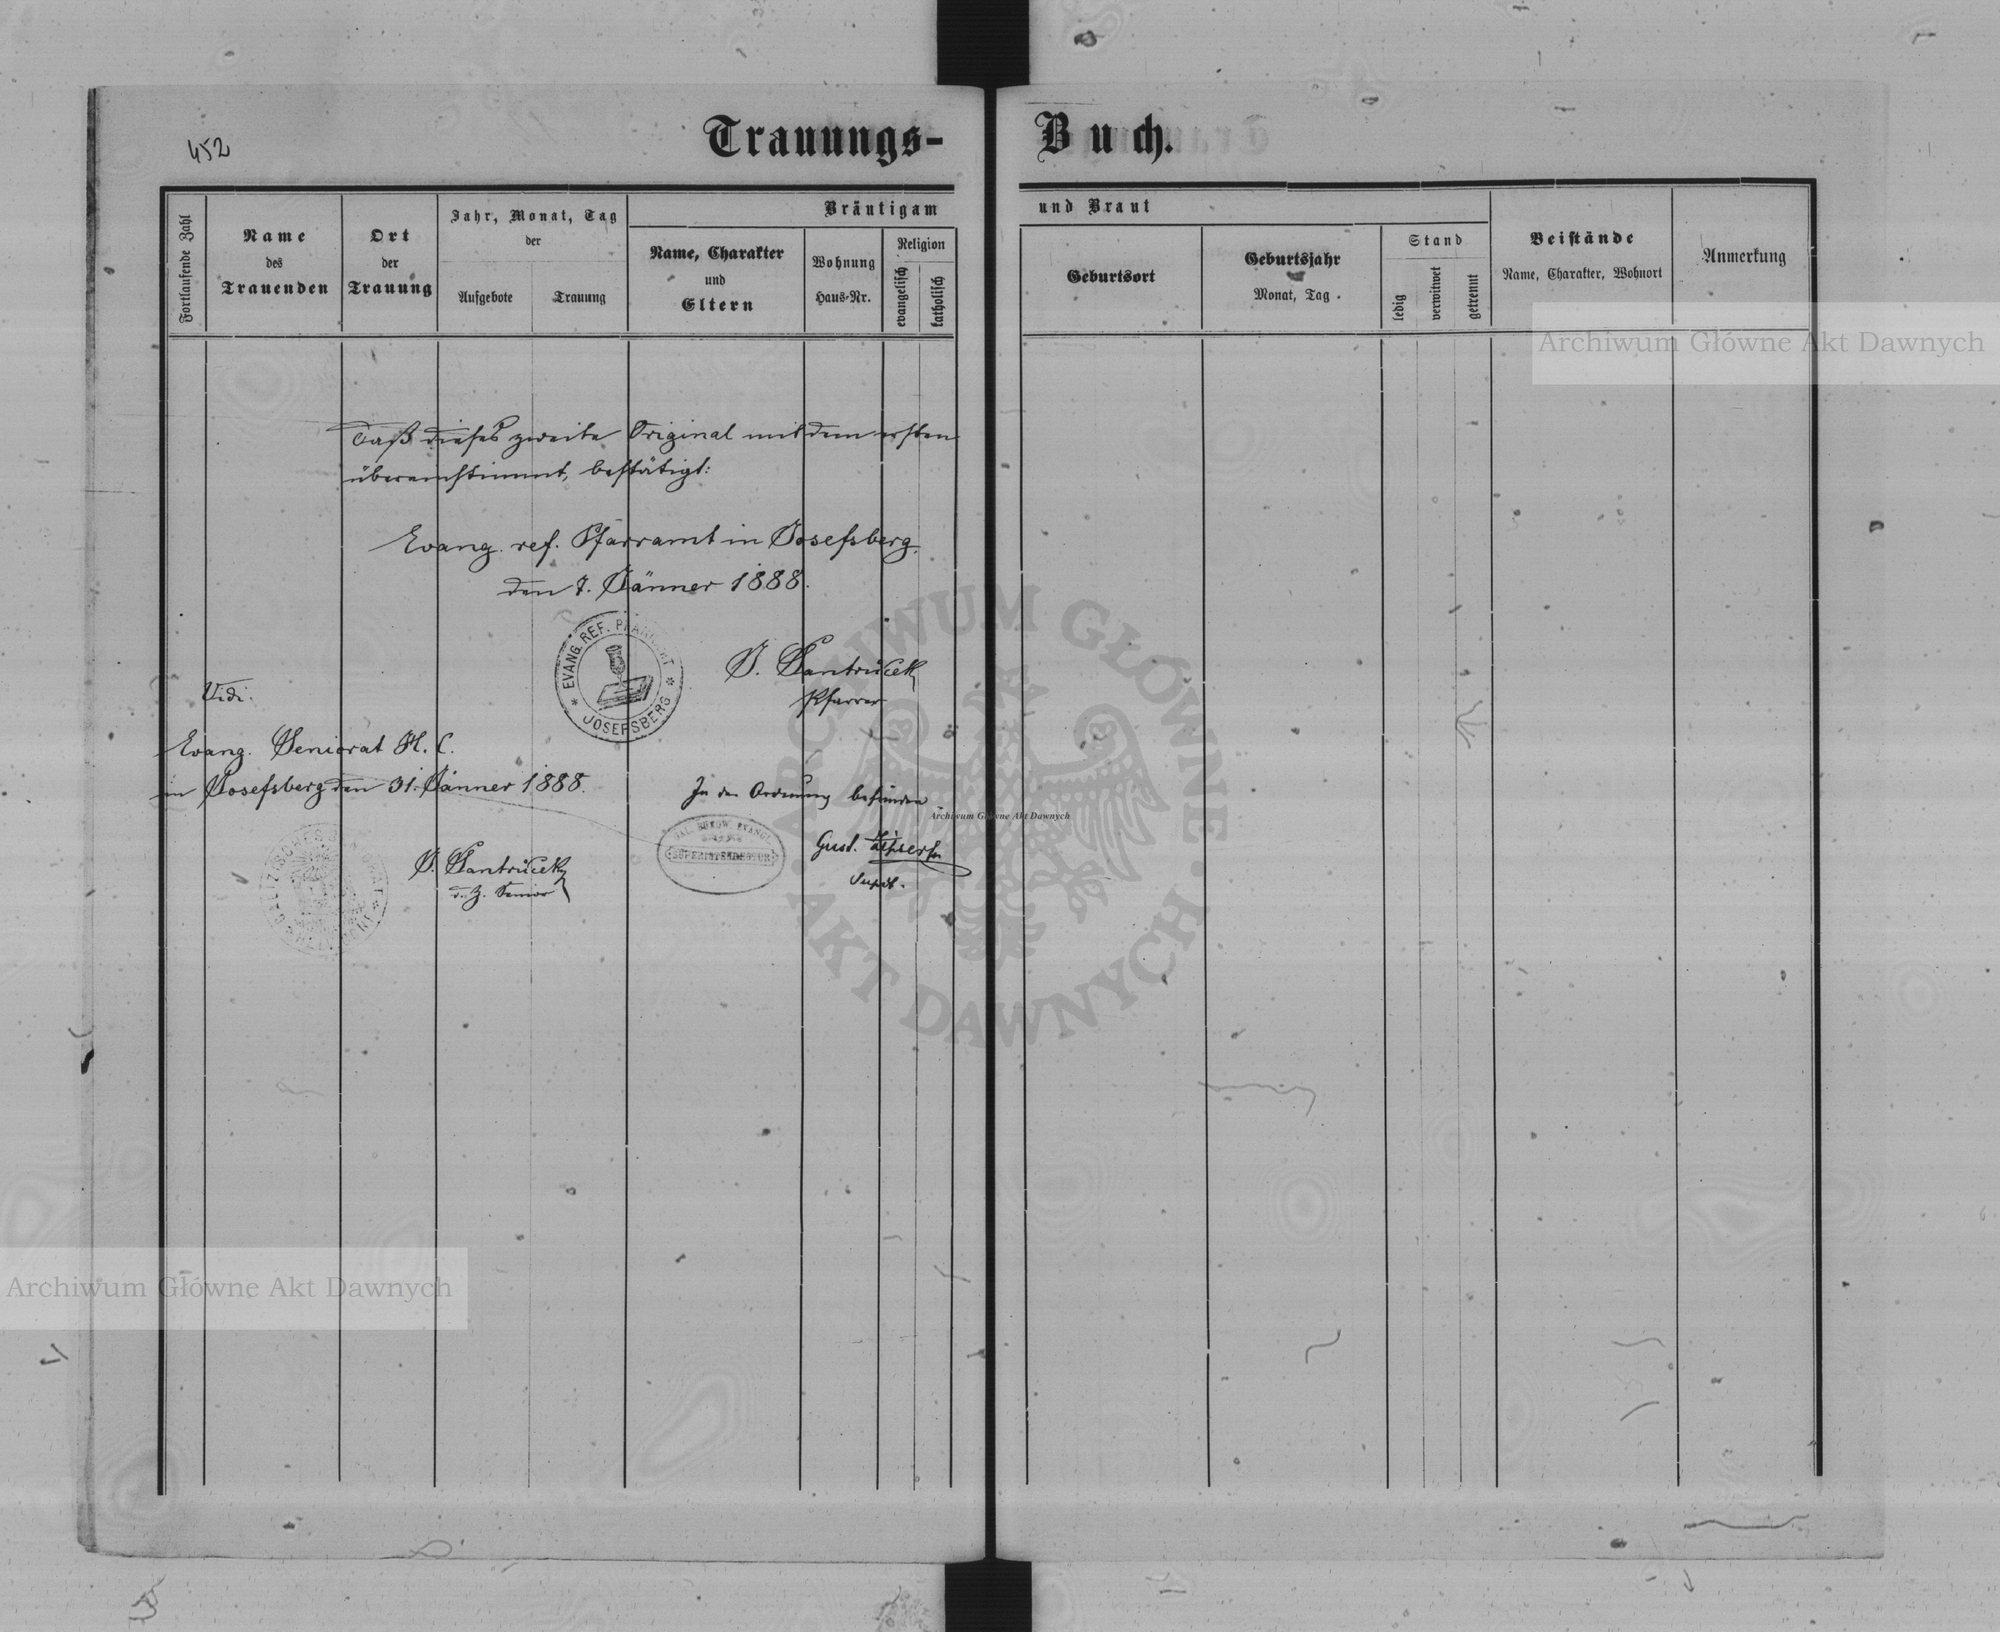 452
Trauungs-Buch.
Fortlaufende Zahl
Name
des
Trauenden
Ort
der
Trauung
Jahr, Monat, Tag
der
Aufgebote
Trauung
Bräutigam
Name, Charakter
und
Eltern
Wohnung
Haus-Nr.
Religion
evangelisch
katholisch
und Braut
Geburtsort
Geburtsjahr
Monat, Tag.
Stand
ledig
verwitwet
getrennt
Beistände
Name, Charakter, Wohnort
Anmerkung
Archiwum Główne Akt Dawnych
Daß dieses zweite Original mit dem ersten
übereinstimmt, bestätigt:
Evang. ref. Pfarramt in Josefsberg,
den 7. Jänner 1888.
EVANG. REF. PFARRAMT
JOSEFSBERG
J. Pantrůček
Pfarrer
Vidi:
Evang. Seniorat H. C.
in Josefsberg den 31. Jänner 1888.
J. Pantrůček
d. Z. Senior
In der Ordnung befunden
GAL. BUKOW. EVANG.
SUPERINTENDENTUR
Gust.
Supdt.
ARCHIWUM GŁÓWNE
AKT DAWNYCH
Archiwum Główne Akt Dawnych
Archiwum Główne Akt Dawnych